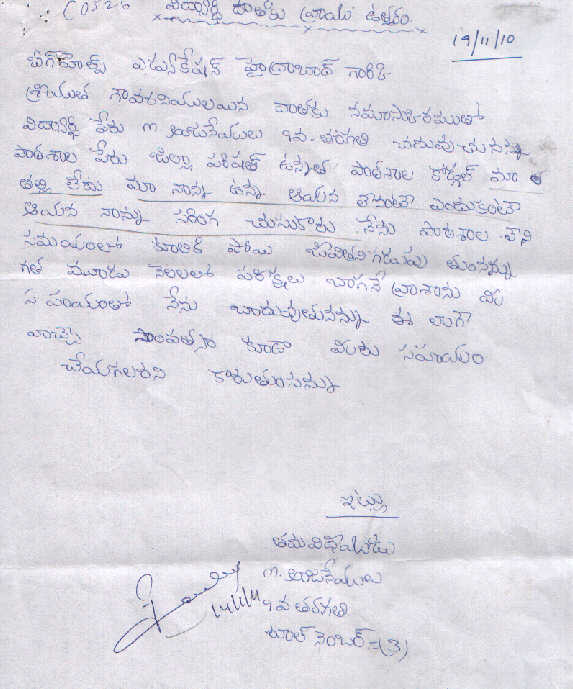 C0326 విద్యార్థి దాతకు వ్రాయు ఉత్తరం
19/11/10
బిగ్‌హెల్ప్ ఎడ్యుకేషన్ హైద్రాబాద్ గారికి
శ్రీయుత గౌవరవనీయులయిన దాతకు నమస్కారములతో
విద్యార్థి పేరు m. ఆంజనేయులు 9వ తరగతి చదువుచున్నాను
పాఠశాల పేరు జిల్లా పరిషత్ ఉన్నత పాఠశాల మా
తల్లి లేదు మా నాన్న ఉన్న ఆయన
ఆయన నాన్ను సరిగ చుసుకొడు. నేను పాఠశాల లేని
సమయంలో కూలికి పోయి జీవితంగడుపు తుంనన్ను
గత మూడు నెలలలో పరిక్షలు బాగనే వ్రాశాను మీ
స హయంతో నేను చాదువుతునన్ను ఈ లాగే
వచ్చే సాంవత్సం కూడా మీరు సహయం
చేయగలరని కొరుతుంనన్ను
ఇట్లు
తమవిధేయుడు
m. ఆంజనేయులు
9వ తరగతి
రూల్ నెంబర్=(3)